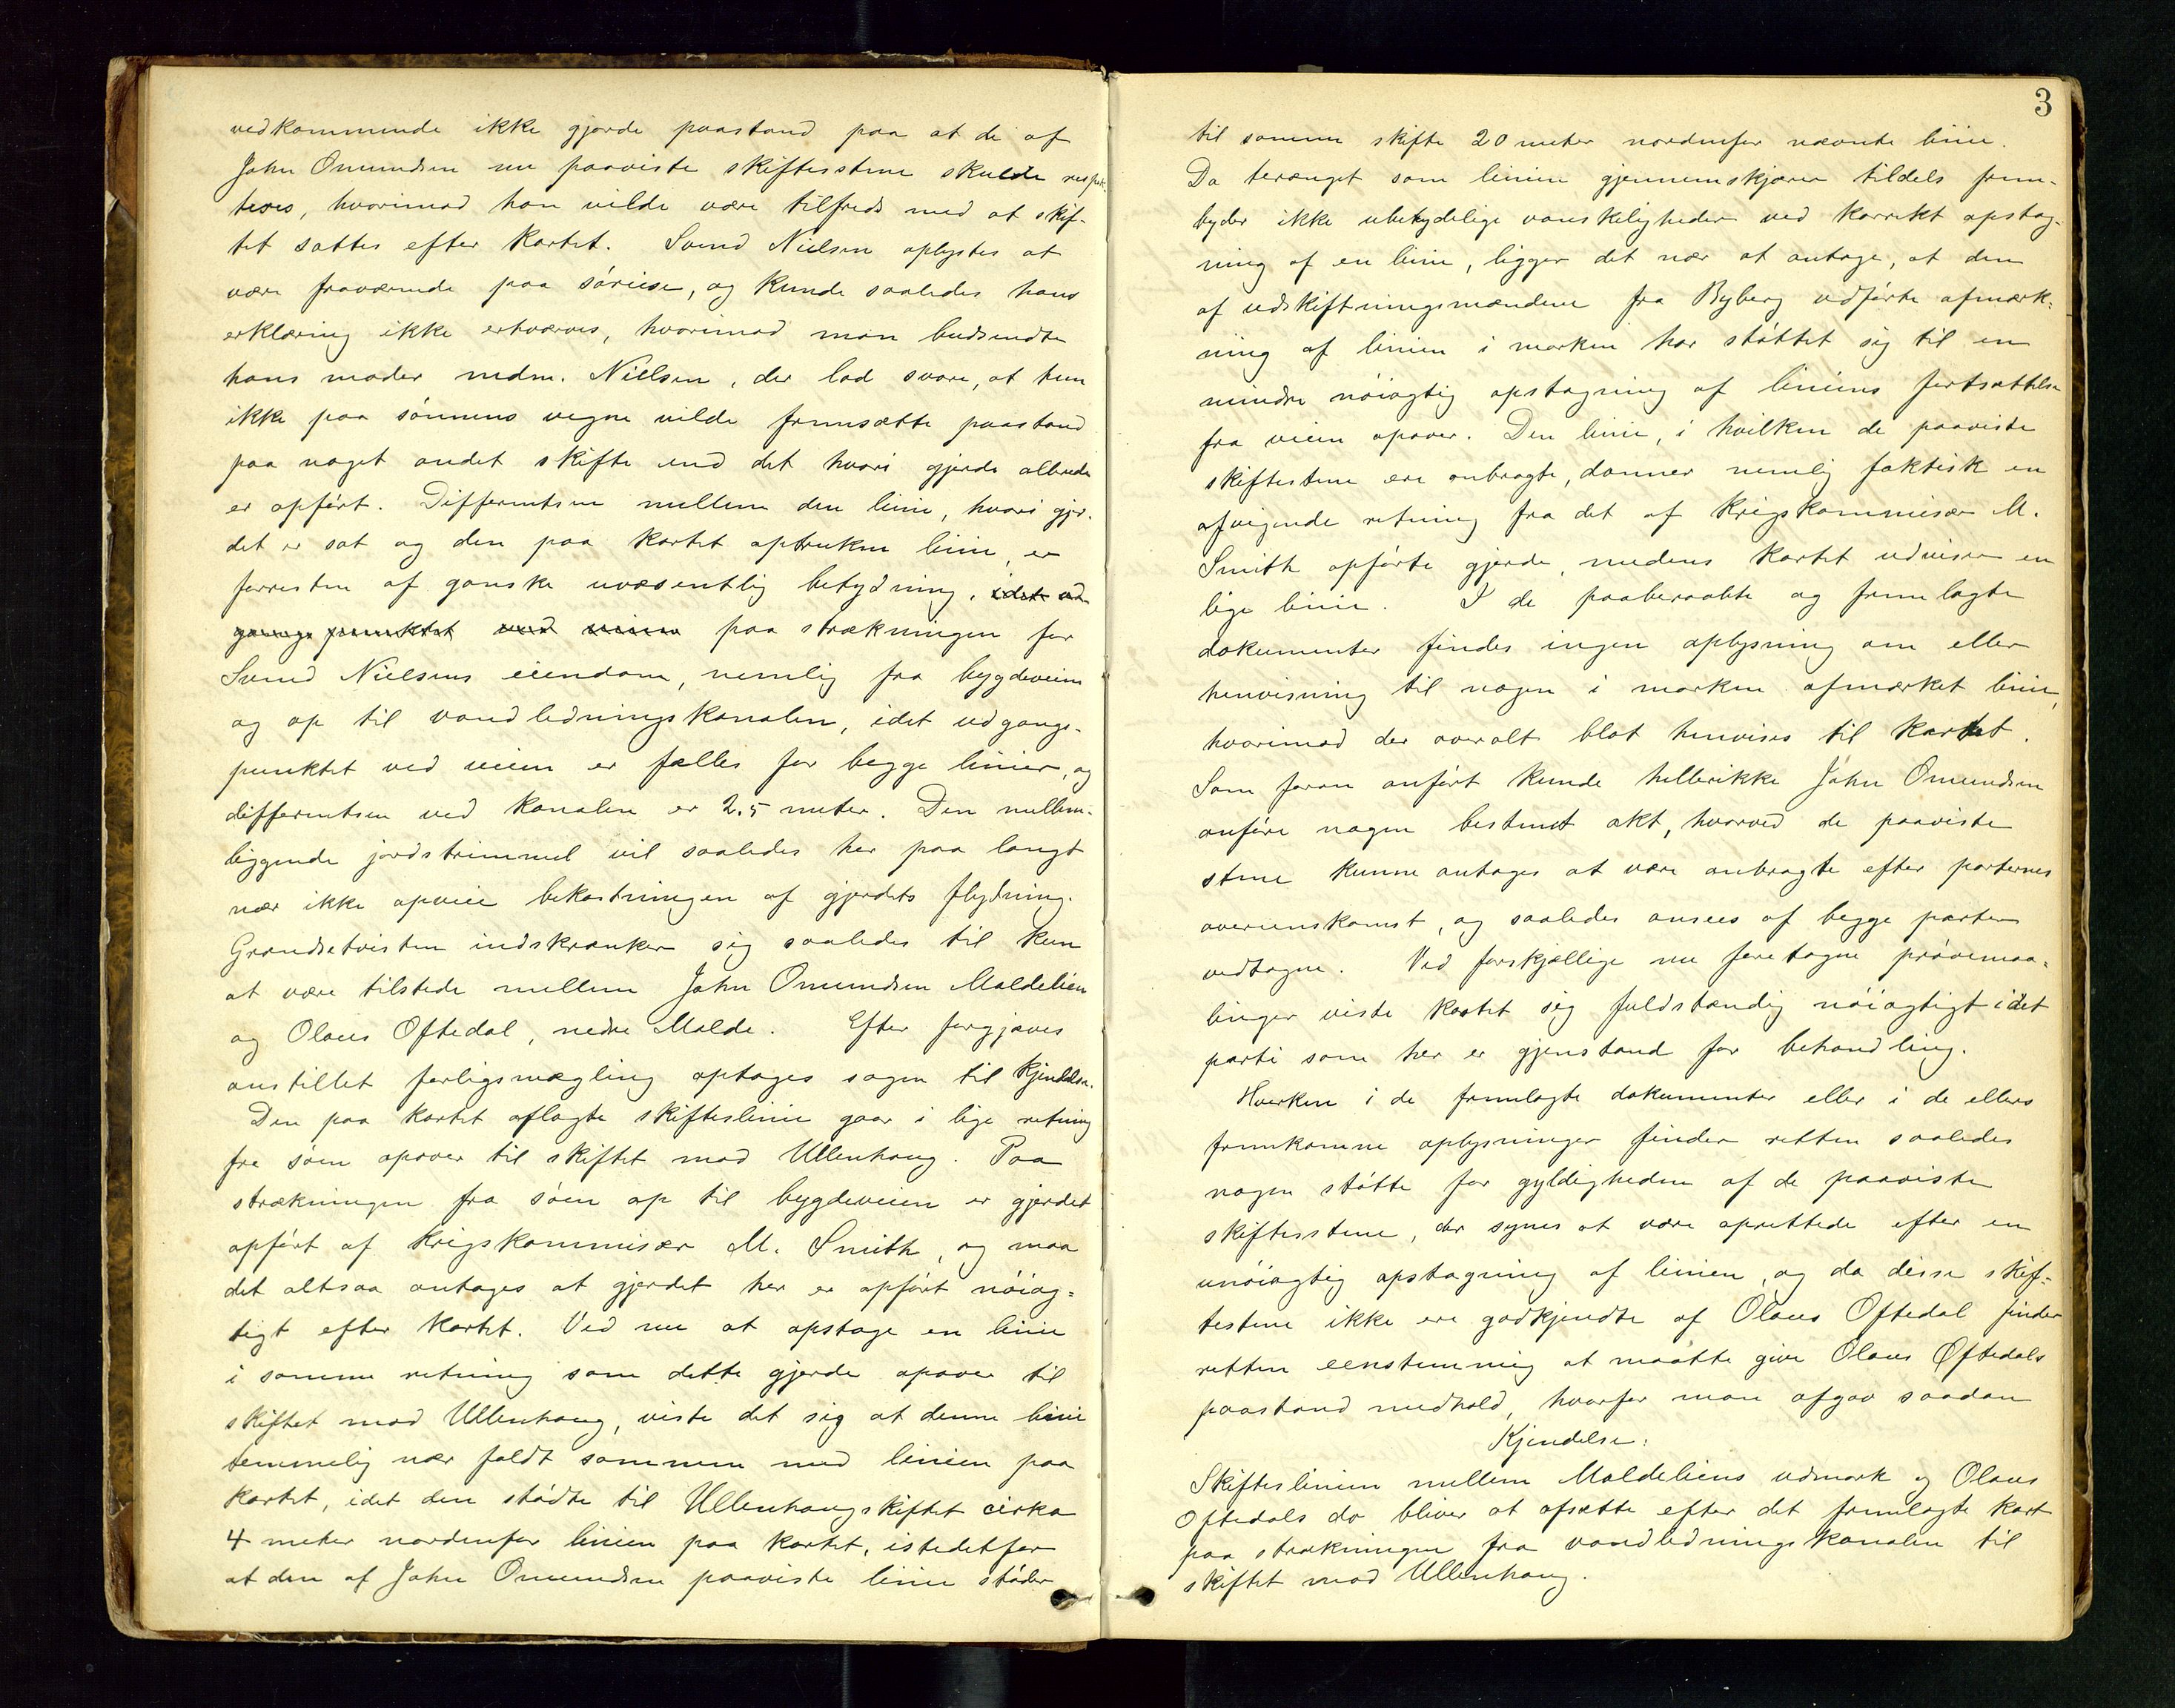 vedkommende ikke gjorde paastand paa at de af
John Omundsen nu paaviste skiftesstene skulde respek-
teres, hvorimod han vilde være tilfreds med at skif-
tet sattes efter kartet. Svend Nielsen oplystes at
være fraværende paa søreise, og kunde saaledes hans
erklæring ikke erhverves, hvorimod man budsendte
hans moder mdm. Nielsen, der lod svare, at hun
ikke paa sønnens vegne vilde fremsætte paastand
paa noget andet skifte end det hvori gjerde allerede
er opført. Differentsen mellem den linie, hvori gjer-
det er sat og den paa kartet optrukne linie, er
forresten af ganske uvæsentlig betydning, idet ud-
gangspunktet ved veien paa strækningen for
Svend Nielsens eiendom, nemlig fra bygdeveien
og op til vandledningskanalen, idet udgangs-
punktet ved veien er fælles for begge linier, og
differentsen ved kanalen er 2.5 meter. Den mellem-
liggende jordstrimmel vil saaledes her paa langt
nær ikke opveie bekostningen af gjerdets flytning.
Grændsetvisten indskrænker sig saaledes til kun
at være tilstede mellem John Omundsen Maldelien
og Olaus Oftedal, nedre Malde. Efter forgjæves
anstillet forligsmægling optages sagen til kjendelse.
Den paa kartet aflagte skifteslinie gaar i lige retning
fra søen opover til skiftet mod Ullenhaug. Paa
strækningen fra søen op til bygdeveien er gjerdet
opført af Krigskommisær M. Smith, og maa
det altsaa antages at gjerdet her er opført nøiag-
tigt efter kartet. Ved nu at opstage en linie
i samme retning som dette gjerde opover til
skiftet mod Ullenhaug, viste det sig at denne linie
temmelig nær faldt sammen med linien paa
kartet, idet den stødte til Ullenhaugskiftet cirka
4 meter nordenfor linien paa kartet, istedetfor
at den af John Omundsen paaviste linie støder
3
til samme skifte 20 meter nordenfor nævnte linie.
Da terænget som linien gjennemskjærer tildels frem-
byder ikke ubetydelige vanskeligheder ved korrekt opstag-
ning af en linie, ligger det nær at antage, at den
af udskiftningsmændene fra Byberg udførte afmærk-
ning af linien i marken har støttet sig til en
mindre nøiagtig opstagning af liniens fortsættelse
fra veien opover. Den linie, i hvilken de paaviste
skiftestene ere anbragte, danner nemlig faktisk en
afvigende retning fra det af Krigskommisær M.
Smith opførte gjerde, medens kartet udviser en
lige linie. I de paaberaabte og fremlagte
dokumenter findes ingen oplysning om eller
henvisning til nogen i marken afmærket linie,
hvorimod der overalt blot henvises til kartet.
Som foran anført kunde hellerikke John Omundsen
anføre nogen bestemt akt, hvorved de paaviste
stene kunne antages at være anbragte efter parternes
overenskomst, og saaledes ansees af begge parter
vedtagne. Ved forskjellige nu foretagne prøvemaa-
linger viste kartet sig fuldstændig nøiagtigt i det
parti som her er gjenstand for behandling.
Hverken i de fremlagte dokumenter eller i de ellers
fremkomne oplysninger finder retten saaledes
nogen støtte for gyldigheden af de paaviste
skiftesstene, der synes at være oprettede efter en
unøiagtig opstagning af linien, og da disse skif-
testene ikke ere godkjendte af Olaus Oftedal finder
retten eenstemmig at maatte give Olaus Oftedals
paastand medhold, hvorfor man afgav saadan
Kjendelse:
Skifteslinien mellem Maldeliens udmark og Olaus
Oftedals do bliver at afsætte efter det fremlagte kart
paa strækningen fra vandledningskanalen til
skiftet mod Ullenhaug.